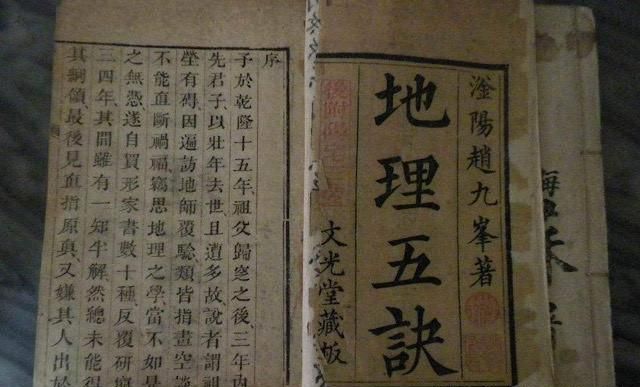 滏陽趙九峯著
地理五訣
文光堂藏板
序
予於乾隆十五年、祖父歸窆之後、三年内
先君子以壮年去世且遭多故說者謂祖
塋有碍因遍訪地師覆騐類皆指畫空談
不能直斷禍福、竊思地理之學、當不如是
之無憑遂自買形家書數十種、反覆研
三四年、其間雖有一知半解然總未能得
其綱領、最後見直指原真、又嫌其人出於